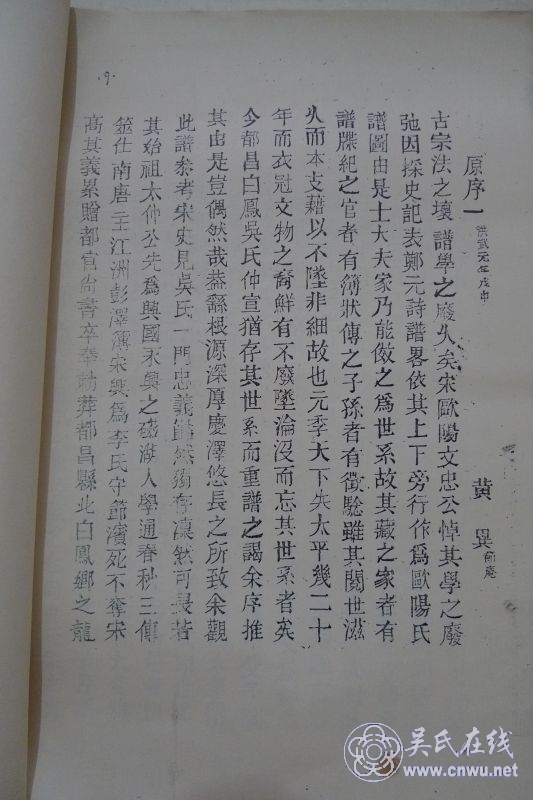 9.
原序一 洪武元年戊申 黄異
古宗法之壞譜學之廢久矣宋歐陽文忠公悼其學之廢
弛因採史記表鄭元詩譜畧依其上下旁行作爲歐陽氏
譜圖由是士大夫家乃能倣之爲世系故其藏之家者有
譜牒紀之官者有簿狀傳之子孫者有徵驗雖其閱世滋
久而本支藉以不墜非細故也元季天下失太平幾二十
年而衣冠文物之裔鮮有不廢墜淪沒而忘其世系者矣
今都昌白鳳吳氏仲宣猶存其世系而重譜之謁余序推
其由是豈偶然哉葢繇根源深厚慶澤悠長之所致余觀
此譜叅考宋史見吳氏一門忠義巋然獨存凜然可最若
其始祖太仲公先爲興國永興之磁湖人學通春秋三傳
筮仕南唐主江洲彭澤簿宋興爲李氏守節濱死不奪宋
高其義累贈都官尙書卒奉勅葬都昌縣北白鳳鄉之龍
吴氏在线
www.cnwu.net